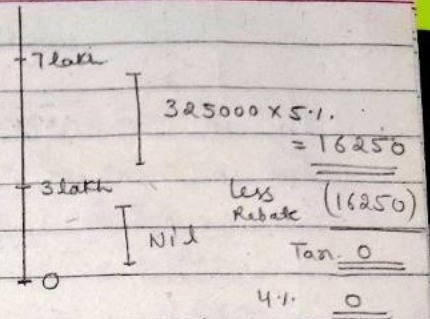 7 lakh
325000 x 5%.
= 16250
3 lakh
less Rebate (16250)
Nil
Tax. 0
0
4%. 0